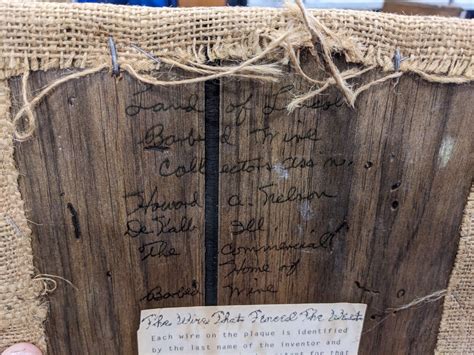 Land of Lincoln
Barbed Wire
Collectors Ass'n.
Howard A. Nelson
De Kalb Ill.
The Commercial
Home of
Barbed Wire
The Wire That Fenced The West
Each wire on the plaque is identified
by the last name of the inventor and
patent for that